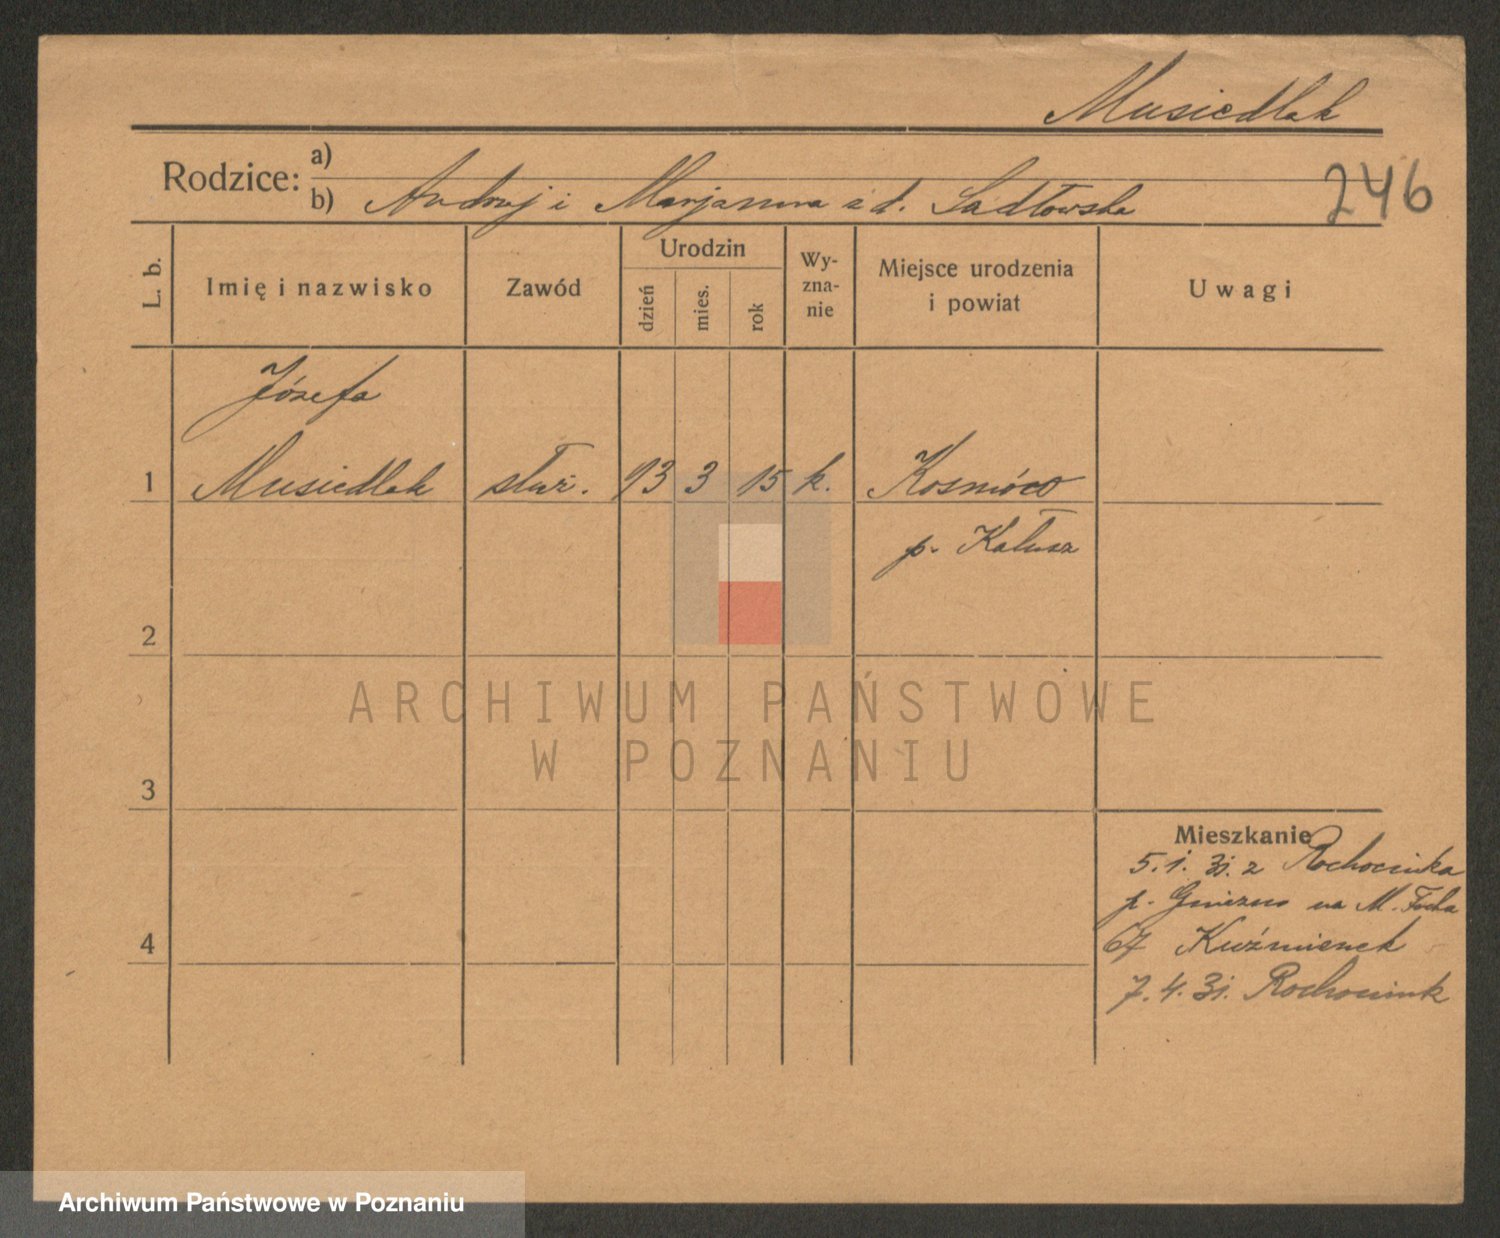 Musiedlak
Rodzice:
a)
b) Andrzej i Marjanna z d. Sadłowska
246
L. b.
Imię i nazwisko
Zawód
Urodzin
dzień
mies.
rok
Wy-
zna-
nie
Miejsce urodzenia
i powiat
Uwagi
Józefa
1 Musiedlak służ. 13 3 15 k.
p. Kałusz
2
3
4
ARCHIWUM PAŃSTWOWE
W POZNANIU
Mieszkanie
5. 1. 31. z Rochocinka
p. Gniezno na M. Focha
67 Kuźmienek
7. 4. 31. Rochocink
Archiwum Państwowe w Poznaniu